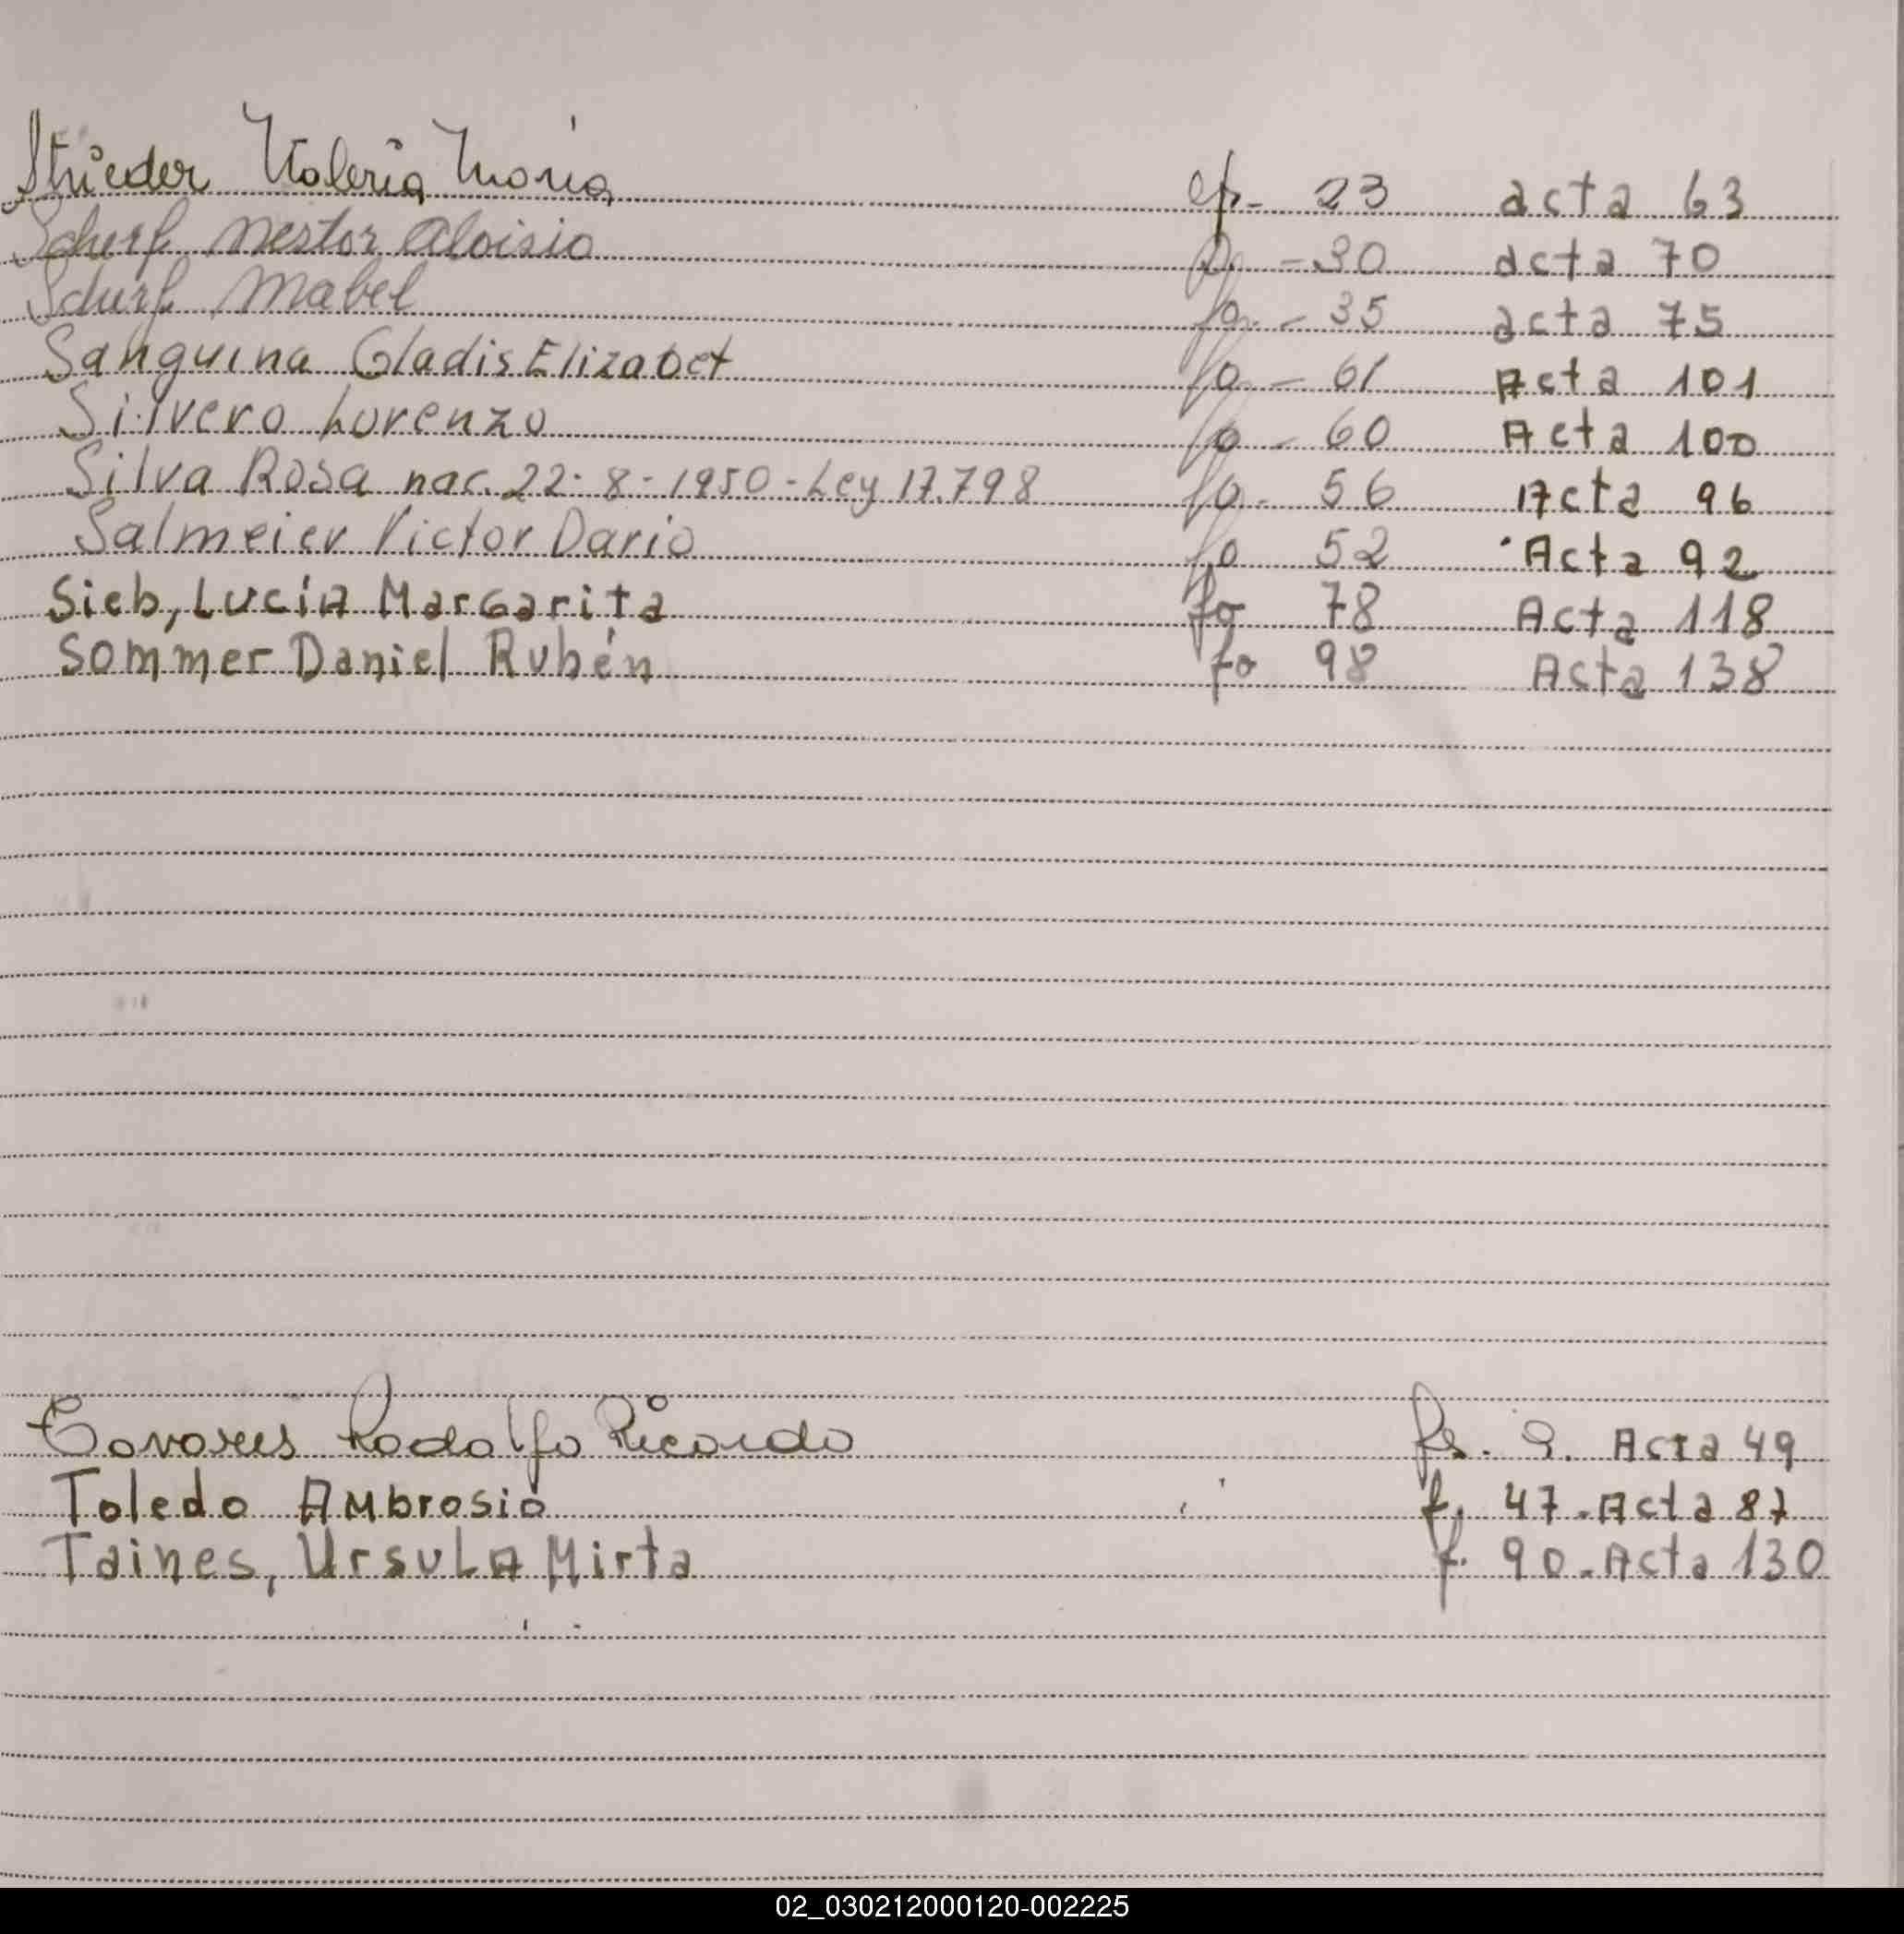 Strieder Valeria María fo- 23 acta 63
Scherf Nestor Aloisio fo - 30 acta 70
Scherf Mabel fo. - 35 acta 75
Sanguina Gladis Elizabet fo - 61 Acta 101
Silvero Lorenzo fo - 60 Acta 100
Silva Rosa nac. 22-8-1950-Ley 17.798 fo- 56 Acta 96
Salmeier Victor Dario fo 52 Acta 92
Sieb, Lucía Margarita fo 78 Acta 118
Sommer Daniel Rubén fo 98 Acta 138
Tavares Rodolfo Ricardo fo. 9. Acta 49
Toledo Ambrosio f. 47. Acta 87
Taines, Ursula Mirta f. 90. Acta 130
02_030212000120-002225